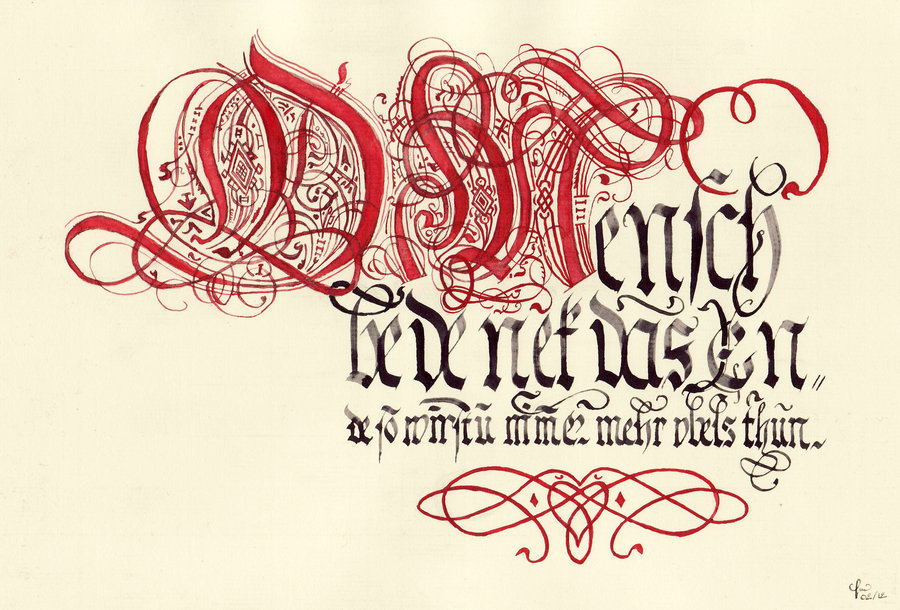 O Mensch
bedenck das En„
de so wirstu nimmer mehr vbels thun.
02/12